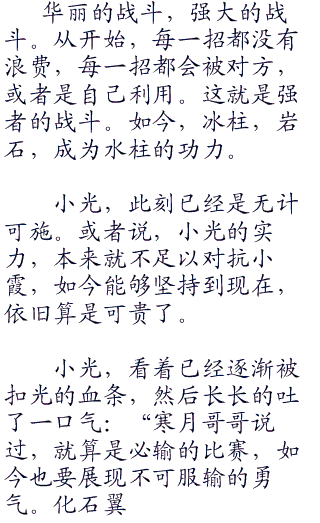 华丽的战斗，强大的战
斗。从开始，每一招都没有
浪费，每一招都会被对方，
或者是自己利用。这就是强
者的战斗。如今，冰柱，岩
石，成为水柱的功力。
小光，此刻已经是无计
可施。或者说，小光的实
力，本来就不足以对抗小
霞，如今能够坚持到现在，
依旧算是可贵了。
小光，看着已经逐渐被
扣光的血条，然后长长的吐
了一口气：“寒月哥哥说
过，就算是必输的比赛，如
今也要展现不可服输的勇
气。化石翼